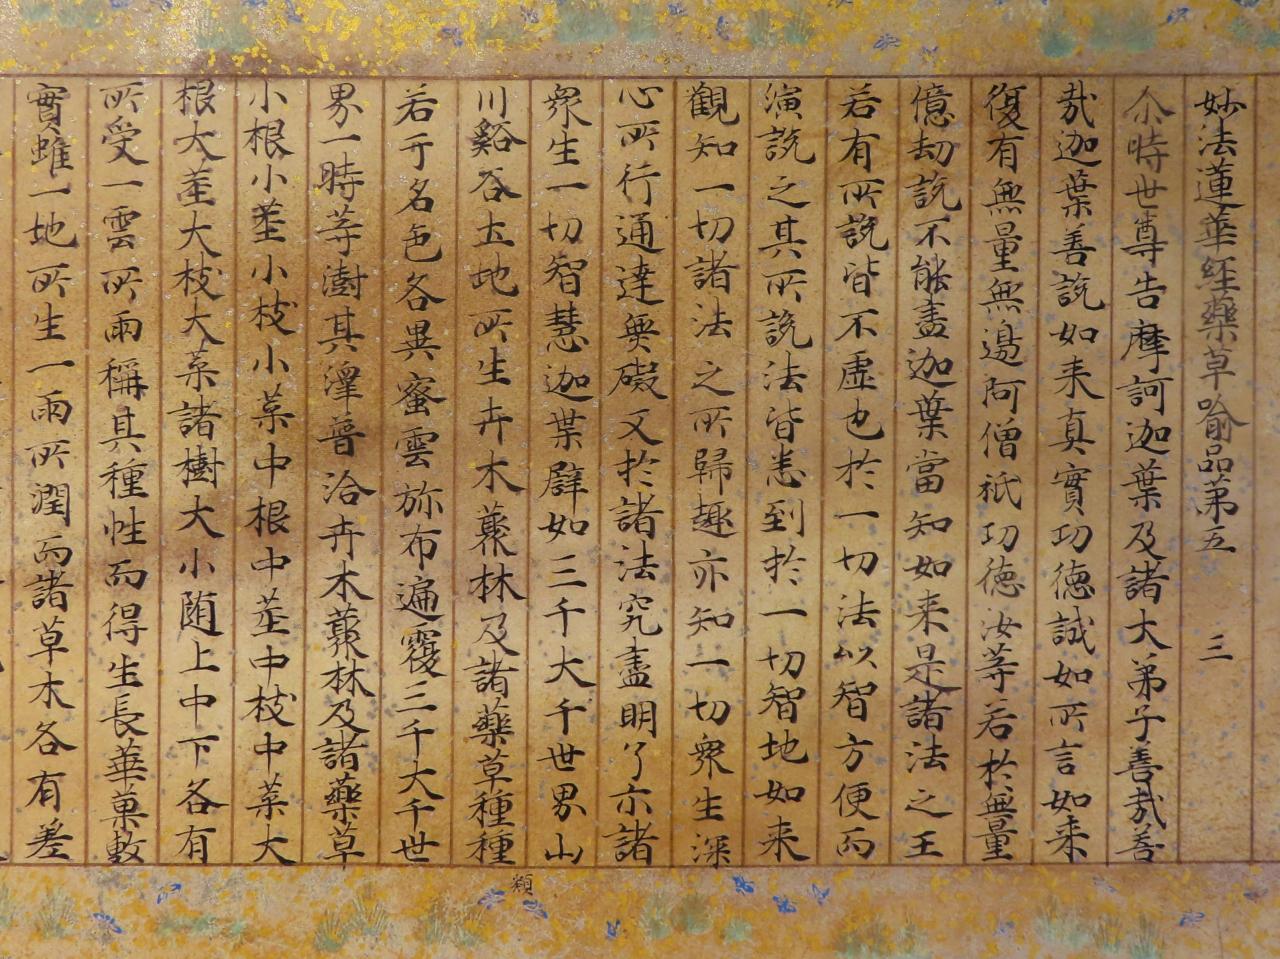 妙法蓮華経藥草喩品第五　三
尒時世尊告摩訶迦葉及諸大弟子善哉善
哉迦葉善説如来真實功徳誠如所言如来
復有無量無邊阿僧祇功徳汝等若於無量
億劫説不能盡迦葉當知如来是諸法之王
若有所説皆不虚也於一切法以智方便而
演説之其所説法皆悉到於一切智地如来
觀知一切諸法之所歸趣亦知一切衆生深
心所行通達無礙又於諸法究盡明了示諸
衆生一切智慧迦葉辟如三千大千世界山
川谿谷土地所生卉木藂林及諸藥草種種
若干名色各異蜜雲弥布遍覆三千大千世
界一時等澍其澤普洽卉木藂林及諸藥草
小根小莖小枝小葉中根中莖中枝中葉大
根大莖大枝大葉諸樹大小随上中下各有
所受一雲所雨稱其種性而得生長華菓敷
實雖一地所生一雨所潤而諸草木各有差
類